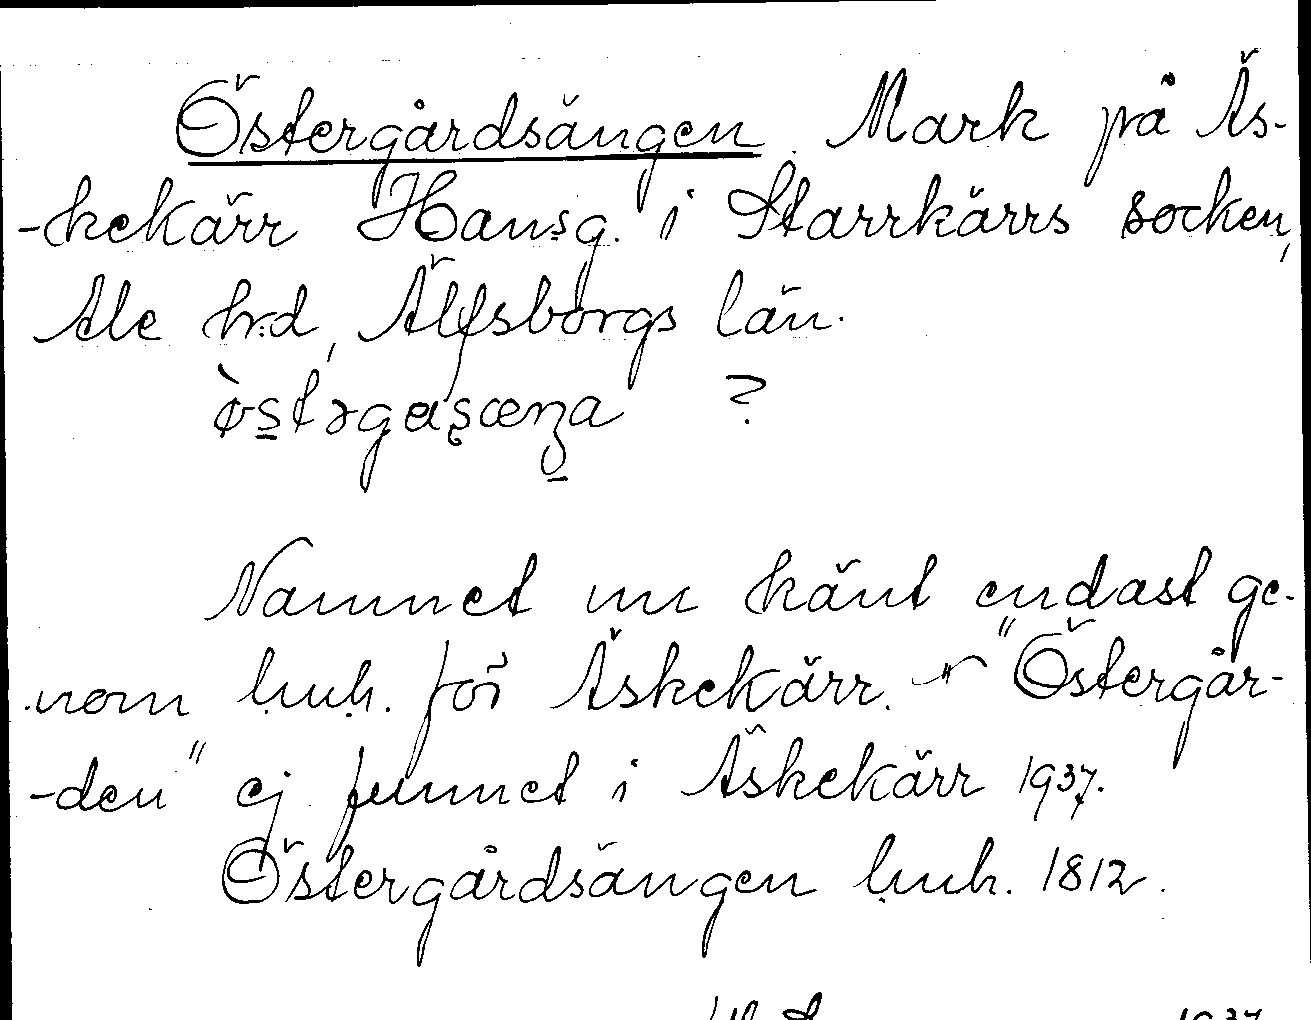 Östergårdsängen Mark på Äs-
-kekärr Hansg. i Starrkärrs socken,
Ale hd, Älfsborgs län.
ö̀stərgaʂæŋa ?
Namnet nu känt endast ge-
nom hmh. för Äskekärr. "Östergår-
-den" ej funnet i Äskekärr 1937.
Östergårdsängen hmh. 1812.
1937